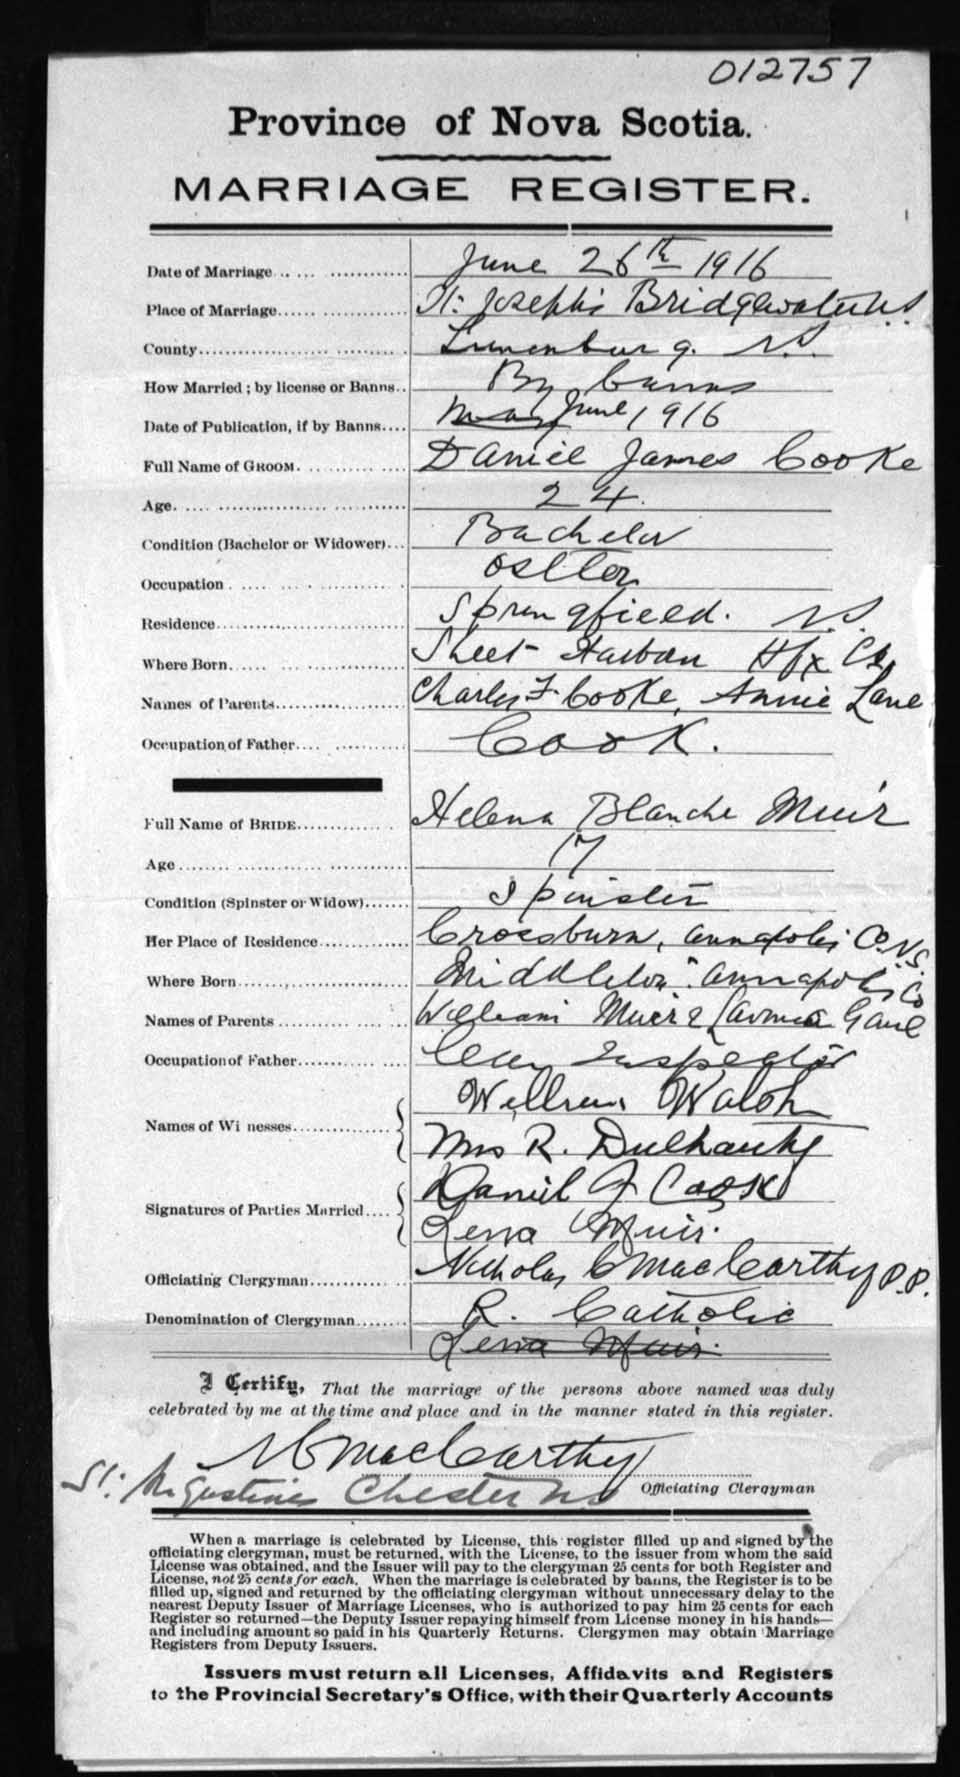 012757
Province of Nova Scotia.
MARRIAGE REGISTER.
Date of Marriage... June 26th 1916
Place of Marriage... St. Joseph's Bridgewater N.S.
County... Lunenburg. N.S.
How Married; by license or Banns.. By banns
Date of Publication, if by Banns.... May June, 1916
Full Name of GROOM. Daniel James Cooke
Age. 24.
Condition (Bachelor or Widower)... Bachelor
Occupation. Ostler
Residence... Springfield. N.S.
Where Born... Sheet Harbour Hfx Co,
Names of Parents... Charles F Cooke, Annie Lane
Occupation of Father... Cook.
Full Name of BRIDE... Helena Blanche Muir
Age... 17
Condition (Spinster or Widow)... Spinster
Her Place of Residence... Crossburn, Annapolis Co. N.S.
Where Born... Middleton. Annapolis Co
Names of Parents... William Muir & Gaul
Occupation of Father... Inspector
Names of Wi nesses... William Walsh
Mrs R. Dulhanty
Signatures of Parties Married.... Daniel J Cook
Lena Muir.
Officiating Clergyman... Nicholas C MacCarthy P.P.
Denomination of Clergyman... R. Catholic
Lena Muir.
I Certify, That the marriage of the persons above named was duly
celebrated by me at the time and place and in the manner stated in this register.
N C MacCarthy
St. Augustines Chester N.S. Officiating Clergyman
When a marriage is celebrated by License, this register filled up and signed by the
officiating clergyman, must be returned, with the License, to the issuer from whom the said
License was obtained, and the Issuer will pay to the clergyman 25 cents for both Register and
License, not 25 cents for each. When the marriage is celebrated by banns, the Register is to be
filled up, signed and returned by the officiating clergyman without unnecessary delay to the
nearest Deputy Issuer of Marriage Licenses, who is authorized to pay him 25 cents for each
Register so returned—the Deputy Issuer repaying himself from License money in his hands—
and including amount so paid in his Quarterly Returns. Clergymen may obtain Marriage
Registers from Deputy Issuers.
Issuers must return all Licenses, Affidavits and Registers
to the Provincial Secretary's Office, with their Quarterly Accounts